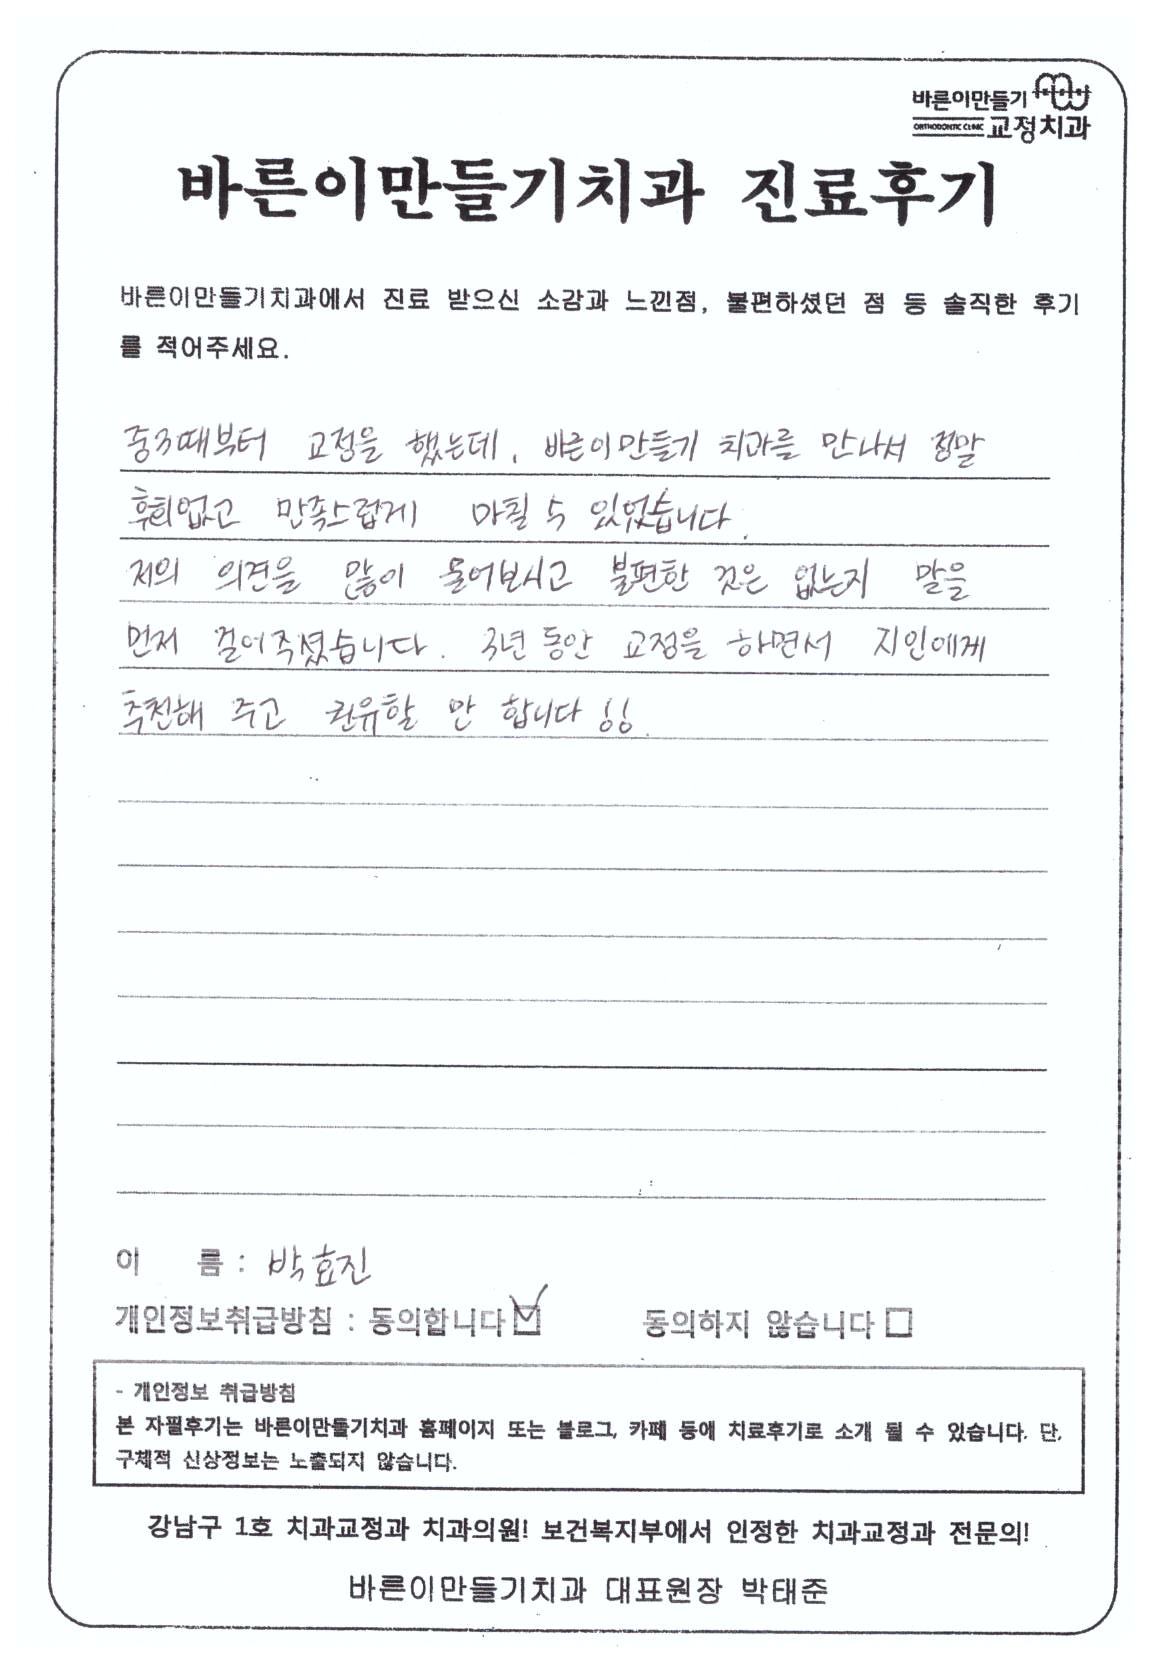 바른이만들기
ORTHODONTIC CLINIC 교정치과
바른이만들기치과 진료후기
바른이만들기치과에서 진료 받으신 소감과 느낀점, 불편하셨던 점 등 솔직한 후기
를 적어주세요.
중3때부터 교정을 했는데, 바른이만들기 치과를 만나서 정말
후회없고 만족스럽게 마칠 수 있었습니다.
저의 의견을 많이 물어보시고 불편한 것은 없는지 말을
먼저 걸어주셨습니다. 3년 동안 교정을 하면서 지인에게
추천해 주고 권유할 만 합니다!!
이 름 : 박효진
개인정보취급방침 : 동의합니다☑ 동의하지 않습니다□
- 개인정보 취급방침
본 자필후기는 바른이만들기치과 홈페이지 또는 블로그, 카페 등에 치료후기로 소개 될 수 있습니다. 단,
구체적 신상정보는 노출되지 않습니다.
강남구 1호 치과교정과 치과의원! 보건복지부에서 인정한 치과교정과 전문의!
바른이만들기치과 대표원장 박태준